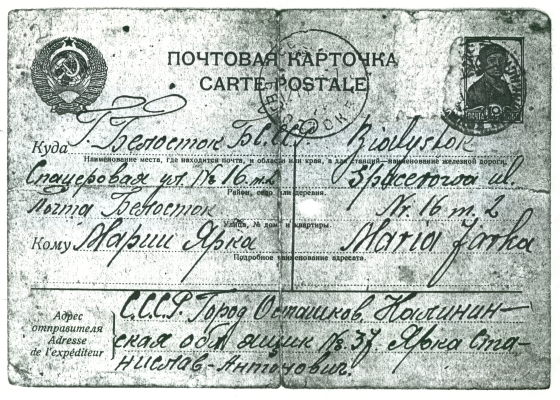 ПОЧТОВАЯ КАРТОЧКА
CARTE POSTALE
Куда Г. Белосток БССР Białystok
Наименование места, где находится почта, и области или края, а для станций—наименование железной дороги.
Спацеровая ул. № 16 m 2 Spacerowa ul.
Район, село или деревня.
Почта Белосток Nr. 16 m. 2
Улица, № дома и квартиры.
Кому Марии Ярка Maria Jarka
Подробное наименование адресата.
Адрес отправителя
Adresse de l'expéditeur
С.С.С.Р. Город Осташков, Калинин-
ская обл. ящик № 37 Ярка Ста-
нислав-Антонович.